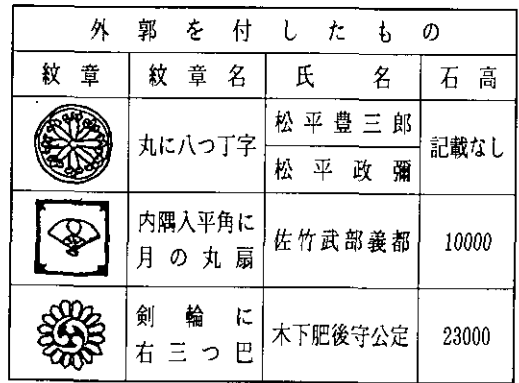 外郭を付したもの
紋章 紋章名 氏名 石高
丸に八つ丁字 松平豊三郎 記載なし
松平政彌
内隅入平角に
月の丸扇 佐竹武部義都 10000
剣輪に
右三つ巴 木下肥後守公定 23000